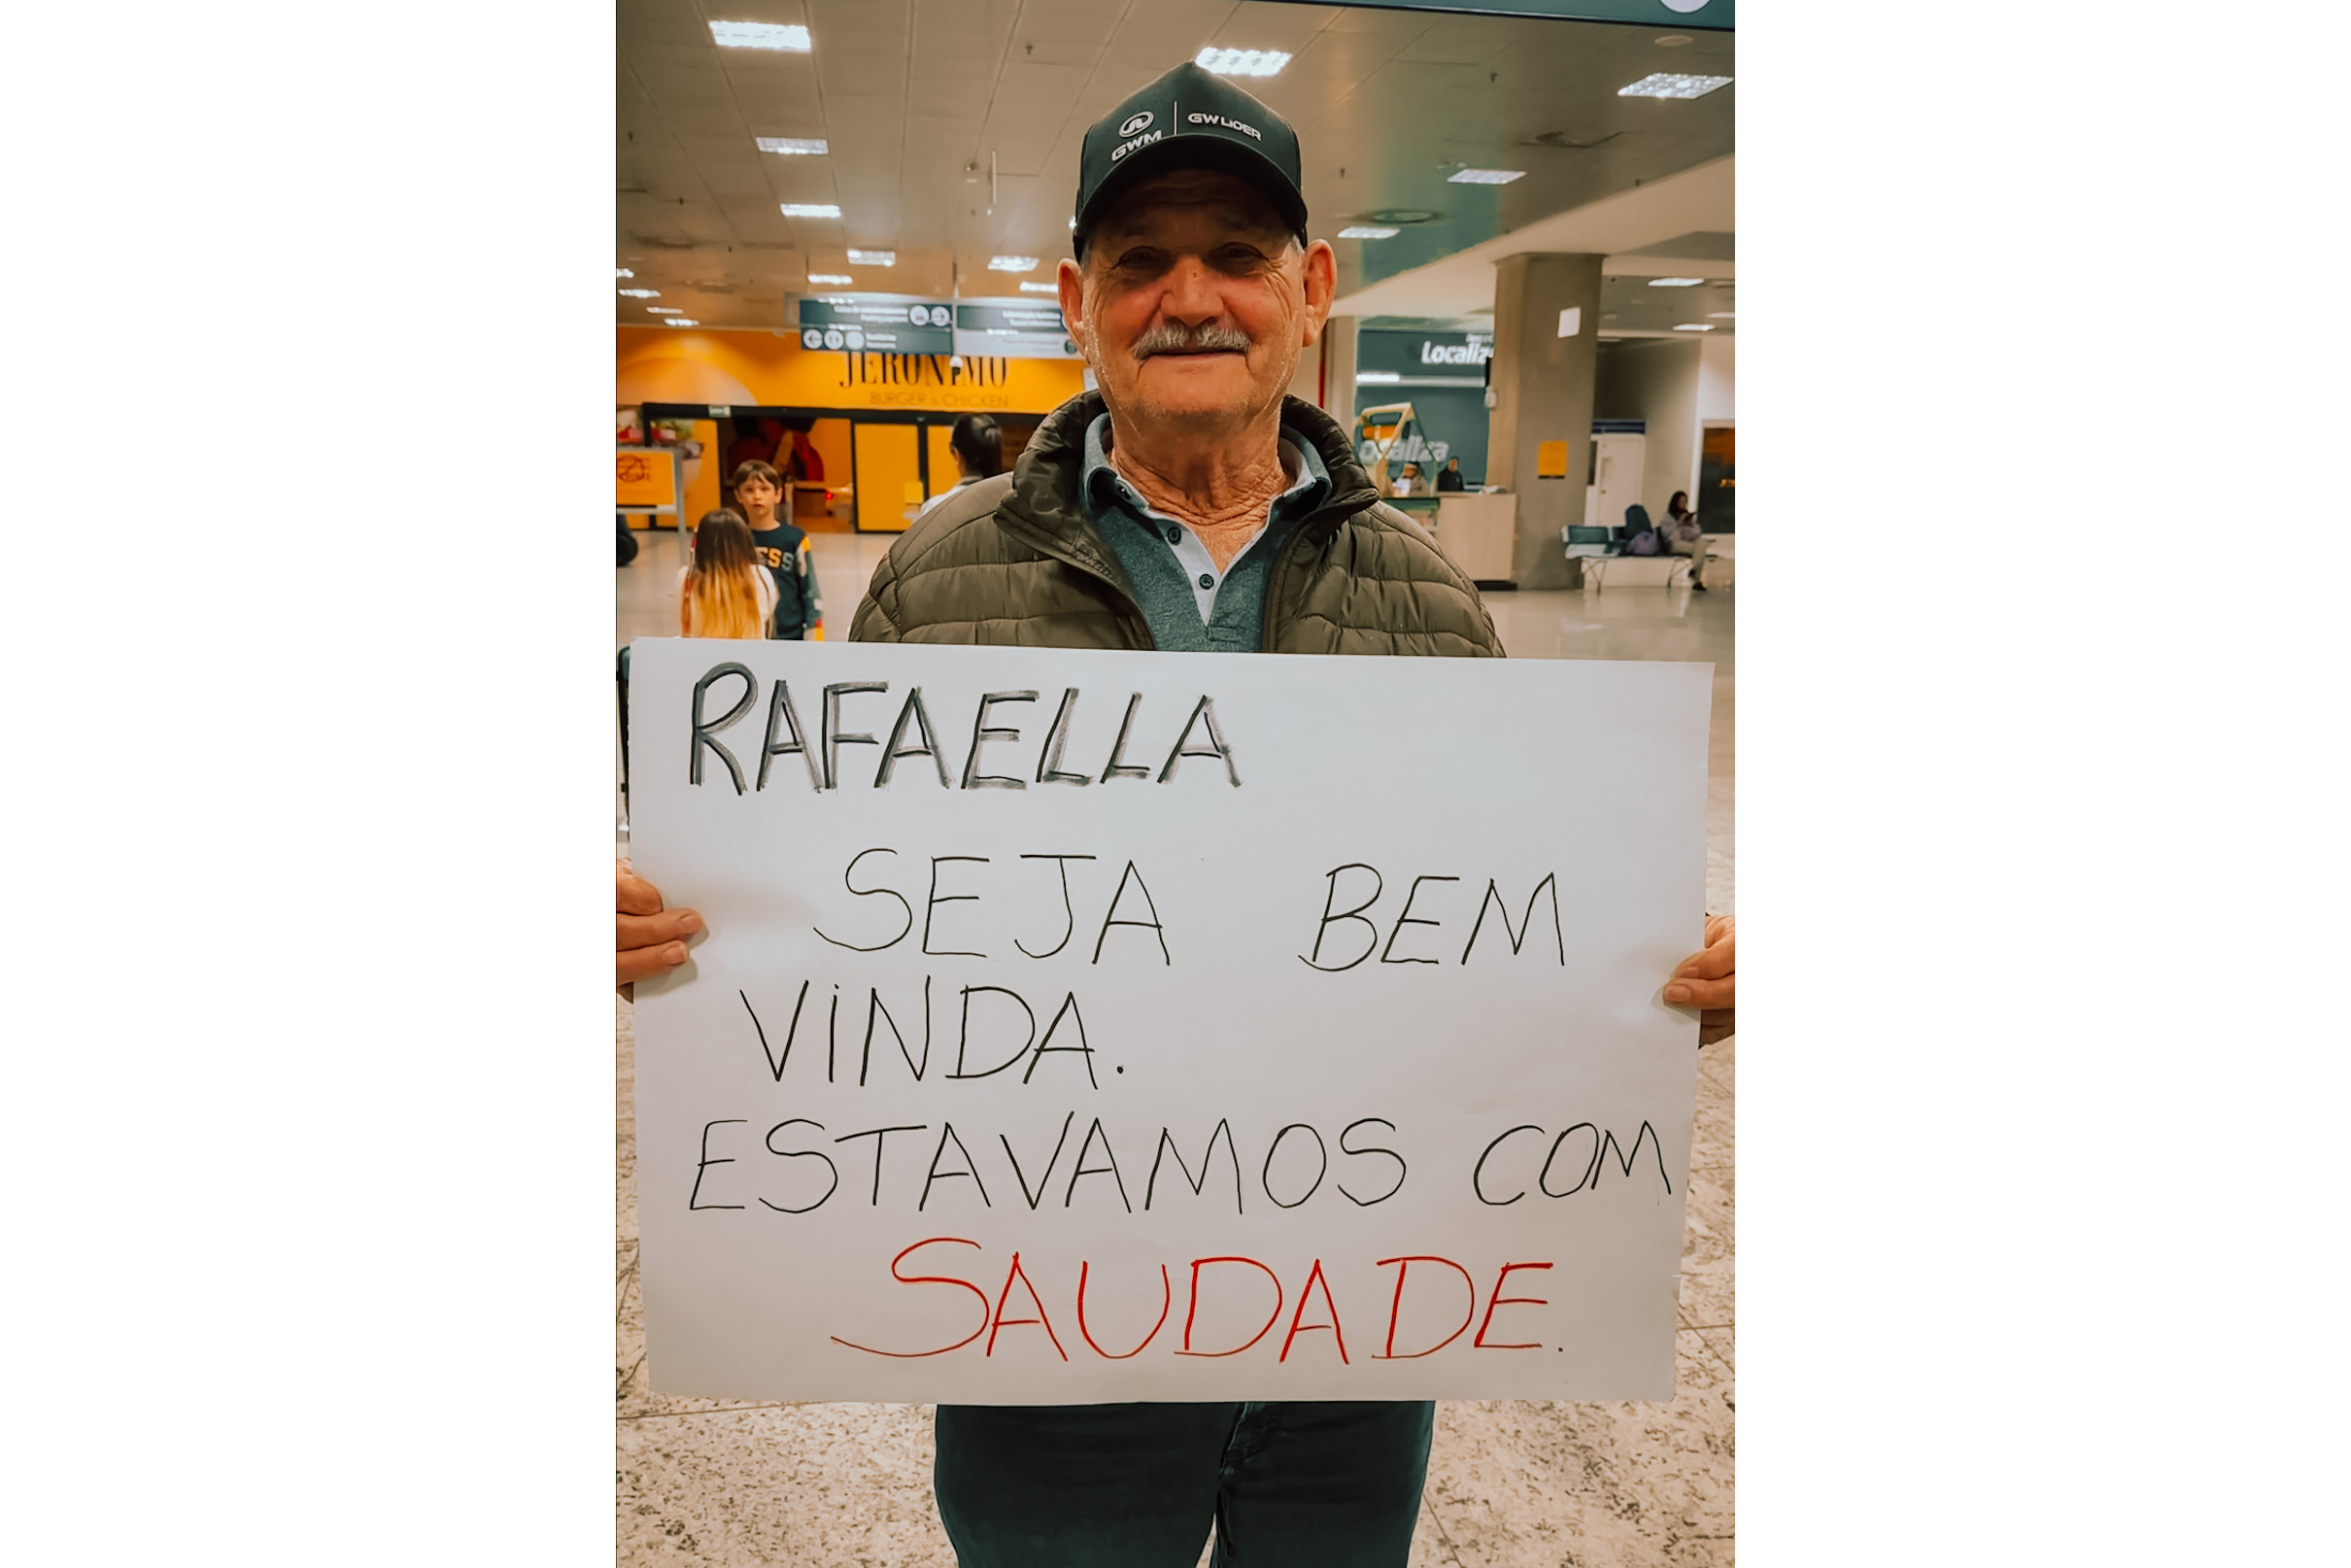 GWM
GW LIDER
JERONIMO
BURGER & CHICKEN
Localiz
ocaliza
ESS
RAFAELLA
SEJA BEM
VINDA.
ESTAVAMOS COM
SAUDADE.